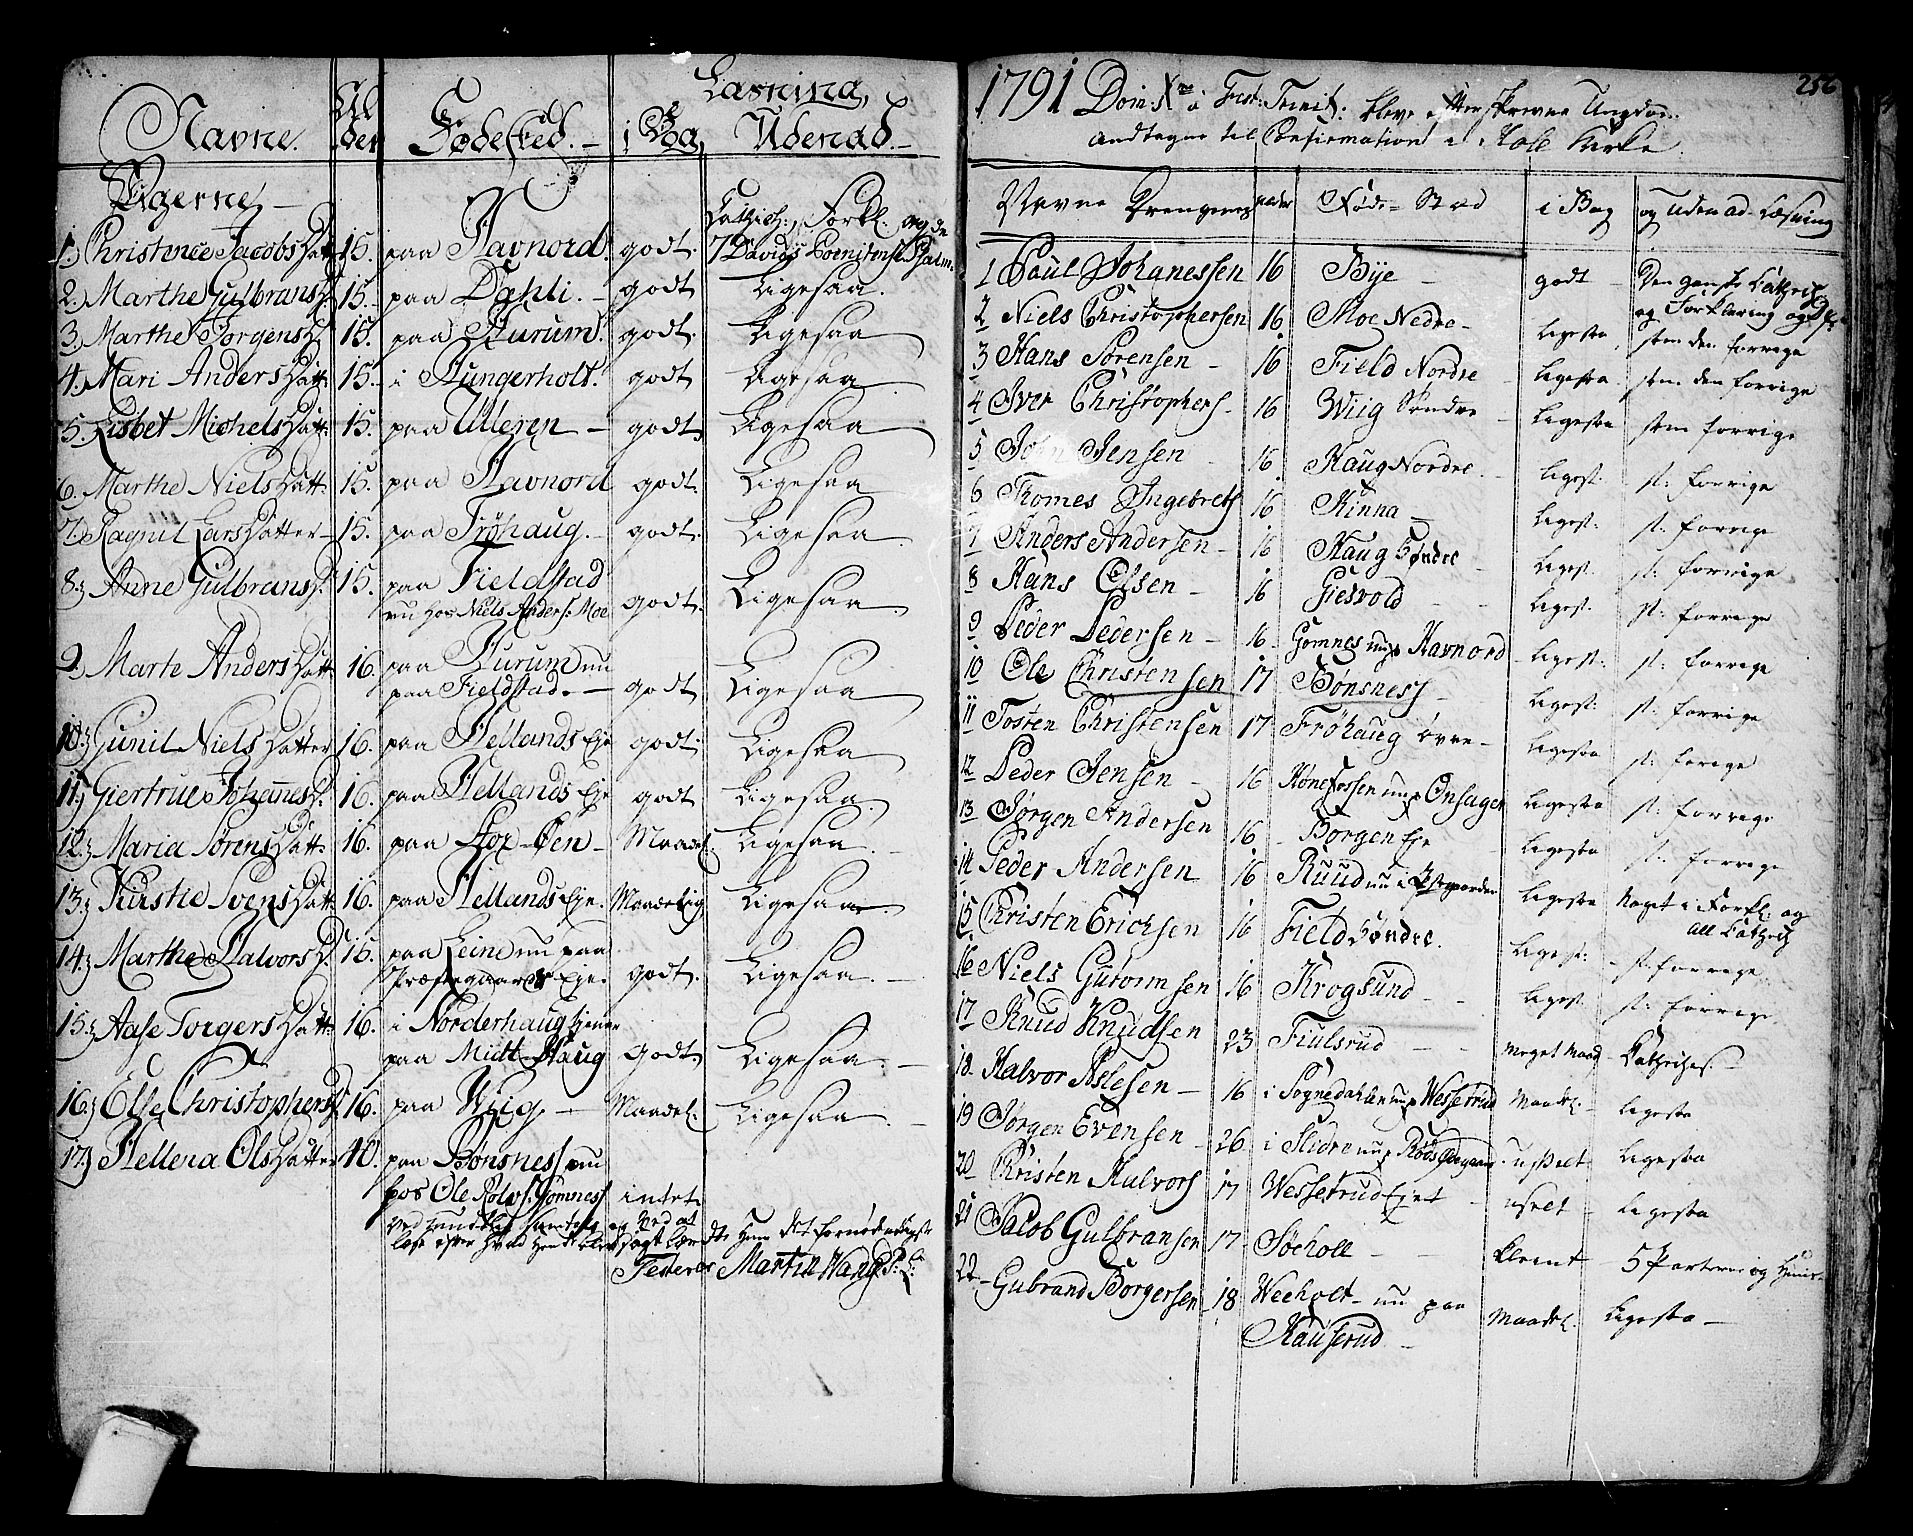 Læsning,
Navne. Alder Fødested. i Bog Udenad.
Pigerne
1. Christence Jacobs Datt. 15. paa Havnord. godt. Cathech:, Forkl. og de 7 Davids Poenitense Psalm.
2. Marthe Gulbrans D. 15. paa Dahli. godt Ligesaa.
3. Marthe Jørgens D. 15. paa Hurum. godt. Ligesaa
4. Mari Anders Datt. 15. i Hungerholt. godt Ligesaa
5. Lisbet Michels Datt. 15. paa Ulleren godt. Ligesaa
6. Marthe Niels Datt. 15. paa Havnord godt. Ligesaa
7. Ragnil Lars Datter 15. paa Frøhaug. godt. Ligesaa.
8. Anne Gulbrans D. 15. paa Fieldstad
nu hos Niels Anders. Moe godt. Ligesaa.
9. Marte Anders Datt. 16. paa Hurum nu
paa Fieldstad. godt Ligesaa
10. Gunil Niels Datter 16. paa Hellands Eje godt. Ligesaa
11. Giertrue Johannes D. 16. paa Hellands Eje godt Ligesaa.
12. Maria Sørens Datt. 16. paa Stox-Øen Maadel. Ligesaa.
13. Kirstie Svens Datt. 16. paa Hellands Eje. Maadelig Ligesaa.
14. Marthe Halvors D. 15. paa Leine nu paa
Præstegaards Eje. godt. Ligesaa.
15. Aase Torgers Datt. 16. i Norderhaug tjener
paa Midt-Haug godt Ligesaa.
16. Else Christophers D. 16. paa Wiig. Maadel. Ligesaa.
17. Hellena Ols Datter 40. paa Bønsness nu
hos Ole Rolvs. Gomness intet
læse efter hvad hende blev sagt lærdte hun det fornødenligste
Testerer Martin Wang
256
1791 Dom: X a Fest: Trinit: bleve efterskrevne Ungdom
andtagne til Confirmation i Hole Kirke.
Navne Drengenes alder Føde-Stæd i Bog og Uden ad Læsning
1 Poul Johanessen 16 Bye godt Den ganske Cathech.
og Forklaring og
2 Niels Christophersen 16 Moe Nedre ligesaa som den forrige
3 Hans Sørensen 16 Field Nordre ligesaa som den forrige
4 Iver Christophers 16 Wiig Søndre ligesaa som forrige
5 John Jensen 16 Haug Nordre ligesaa s: forrige
6 Thomes Ingebrets 16 Hinna liges: s: forrige
7 Anders Andersen 16 Haug Søndre liges. s: forrige
8 Hans Olsen 16 Giesvold liges. s: forrige
9 Peder Pedersen 16 Gomnes nu p Havnord liges: s: forrige
10 Ole Christensen 17 Bønsness liges: s: forrige
11 Tosten Christensen 17 Frøhaug øvre ligesaa s: forrige
12 Peder Jensen 16 Hønefossen nu p Onsager ligesaa s: forrige
13 Jørgen Andersen 16 Borgen Eje ligesaa s: forrige
14 Peder Andersen 16 Ruud nu i Præstegaarden ligesaa Noget i Forkl: og
all Cathech
15 Christen Erichsen 16 Field Søndre. liges: s: forrige
16 Niels Gutormsen 16 Krogsund liges. s: forrige.
17 Knud Knudsen 23 Fiulsrud meget maad. Cathechis.
18. Halvor Aslesen 16 i Sognedahlen nu p Wesserud maadel. ligesaa
19 Jørgen Evensen 26 i Slidre nu p uselt ligesaa
20 Christen Halvors 17 Wesserud Ejet uselt ligesaa
21 Jacob Gulbransen 17 Søeholt Slett 5 Parterne og
22 Gubrand Borgersen 18 Weeholt nu paa
Hauserud maadel. ligesaa